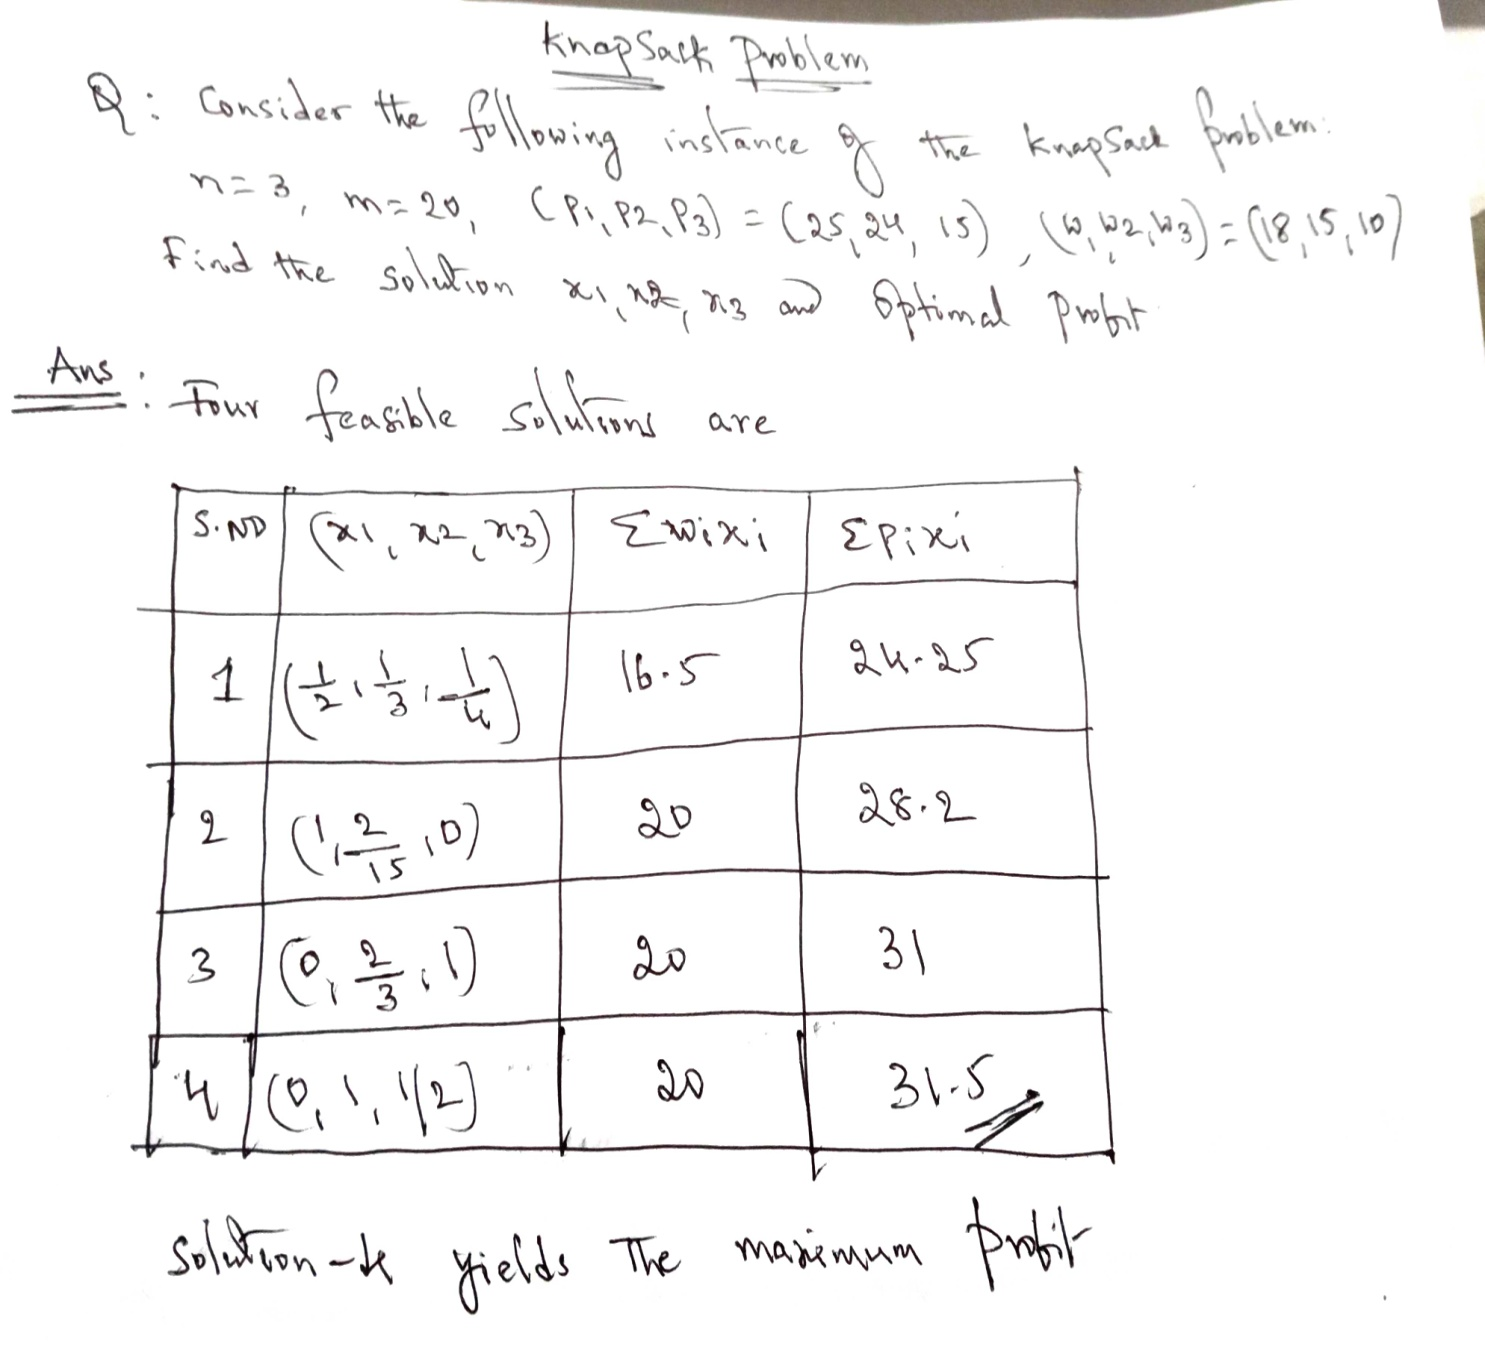 KnapSack Problem
Q: Consider the following instance of the KnapSack problem:
n=3, m=20, (P1, P2, P3) = (25, 24, 15), (W1, W2, W3) = (18, 15, 10)
Find the solution x1, x2, x3 and Optimal Profit
Ans: Four feasible solutions are
S.NO (x1, x2, x3) Σwixi Σpixi
1 (1/2, 1/3, 1/4) 16.5 24.25
2 (1, 2/15, 0) 20 28.2
3 (0, 2/3, 1) 20 31
4 (0, 1, 1/2) 20 31.5
Solution-4 yields The maximum profit